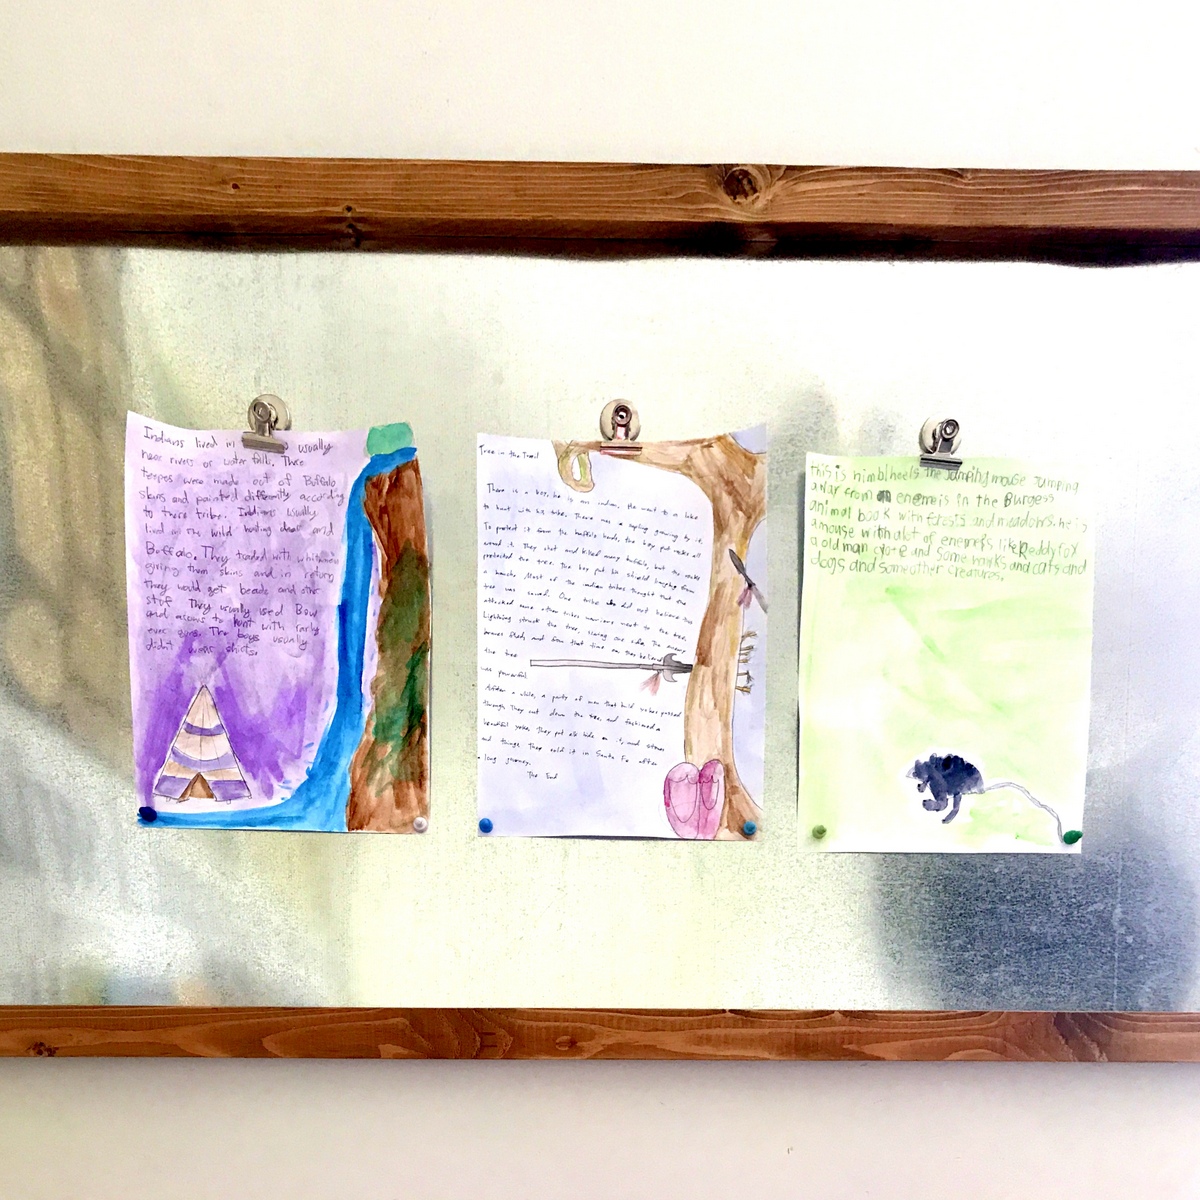 Indians lived in usually
near rivers or water falls. These
teepes were made out of Buffalo
skins and painted differntly according
to there tribe. Indians usually
lived in the wild hunting deer and
Buffalo. They traded with whitemen
giving them skins and in retorn
they would get beads and other
stuf. They usually used Bow
and arrows to hunt with rarly
ever guns. The boys usually
didn't wear shirts.
Tree in the Trail
There is a boy, he is an indian. He went to a lake
to hunt with his tribe. There was a sapling growing by it.
To protect it from the buffalo herds, the boy put rocks all
around it. They shot and killed many buffalo, but the rocks
protected the tree. The boy put his shield hanging from
a branch. Most of the indian tribes thought that one
tree was sacred. One tribe did not believe this
attacked some other tribes warriors next to the tree.
Lightning struck the tree, scaring one side. The enemy
braves fled, and from that time on they believed
the tree
was powerful.
After a while, a party of men that build yokes passed
through. They cut down the tree, and fashioned a
beautiful yoke. They put old hide on it, and stones
and things. They sold it in Santa Fe after
long journey.
The End
this is nimblheels the Jumping mouse Jumping
away from an enemeis in the Burgess
animal book with forests and meadows. he is
a mouse with alot of enemeis like Reddy fox
a old man coyote and some hawks and cats and
dogs and some other creatures.